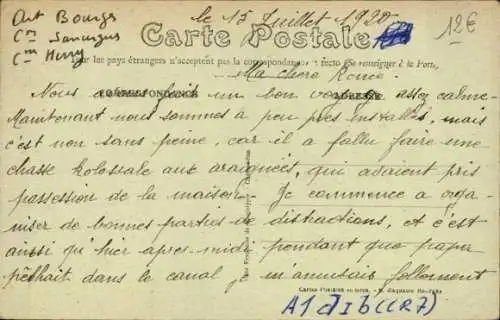 le 15 Juillet 1920
Art Bourges
Cⁿ Sancergues
Cᵐ Herry
12€
Carte Postale
les pays étrangers n'acceptent pas la correspondance au recto (Se renseigner à la Poste)
Ma chère
CORRESPONDANCE
Nous avons fait un bon voyage assez calme.
Maintenant nous sommes à peu près installés, mais
c'est non sans peine, car il a fallu faire une
chasse kolossale aux araignées, qui avaient pris
possession de la maison. Je commence a orga-
niser de bonnes parties de distractions, et c'est
ainsi qu'hier après-midi pendant que papa
pêchait dans le canal je m'amusais follement
A1 d1b (CR7)